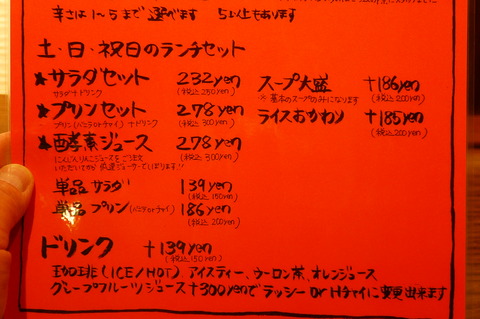 辛さは1~5まで選べます 5以上もあります
土・日・祝日のランチセット
★サラダセット 232yen
サラダ+ドリンク (税込250yen)
★プリンセット 278yen
プリン(バニラorチャイ)+ドリンク (税込300yen)
★酵素ジュース 278yen
にんじんりんごジュースをご注文 (税込300yen)
いただいてから低速ジューサーでしぼります!!
単品サラダ 139yen
(税込150yen)
単品プリン(バニラorチャイ) 186yen
(税込200yen)
スープ大盛 +186yen
※基本のスープのみになります (税込200yen)
ライスおかわり +185yen
(税込200yen)
ドリンク +139yen
(税込150yen)
珈琲(ICE/HOT)、アイスティー、ウーロン茶、オレンジジュース
グレープフルーツジュース +300yenでラッシーorHチャイに変更出来ます